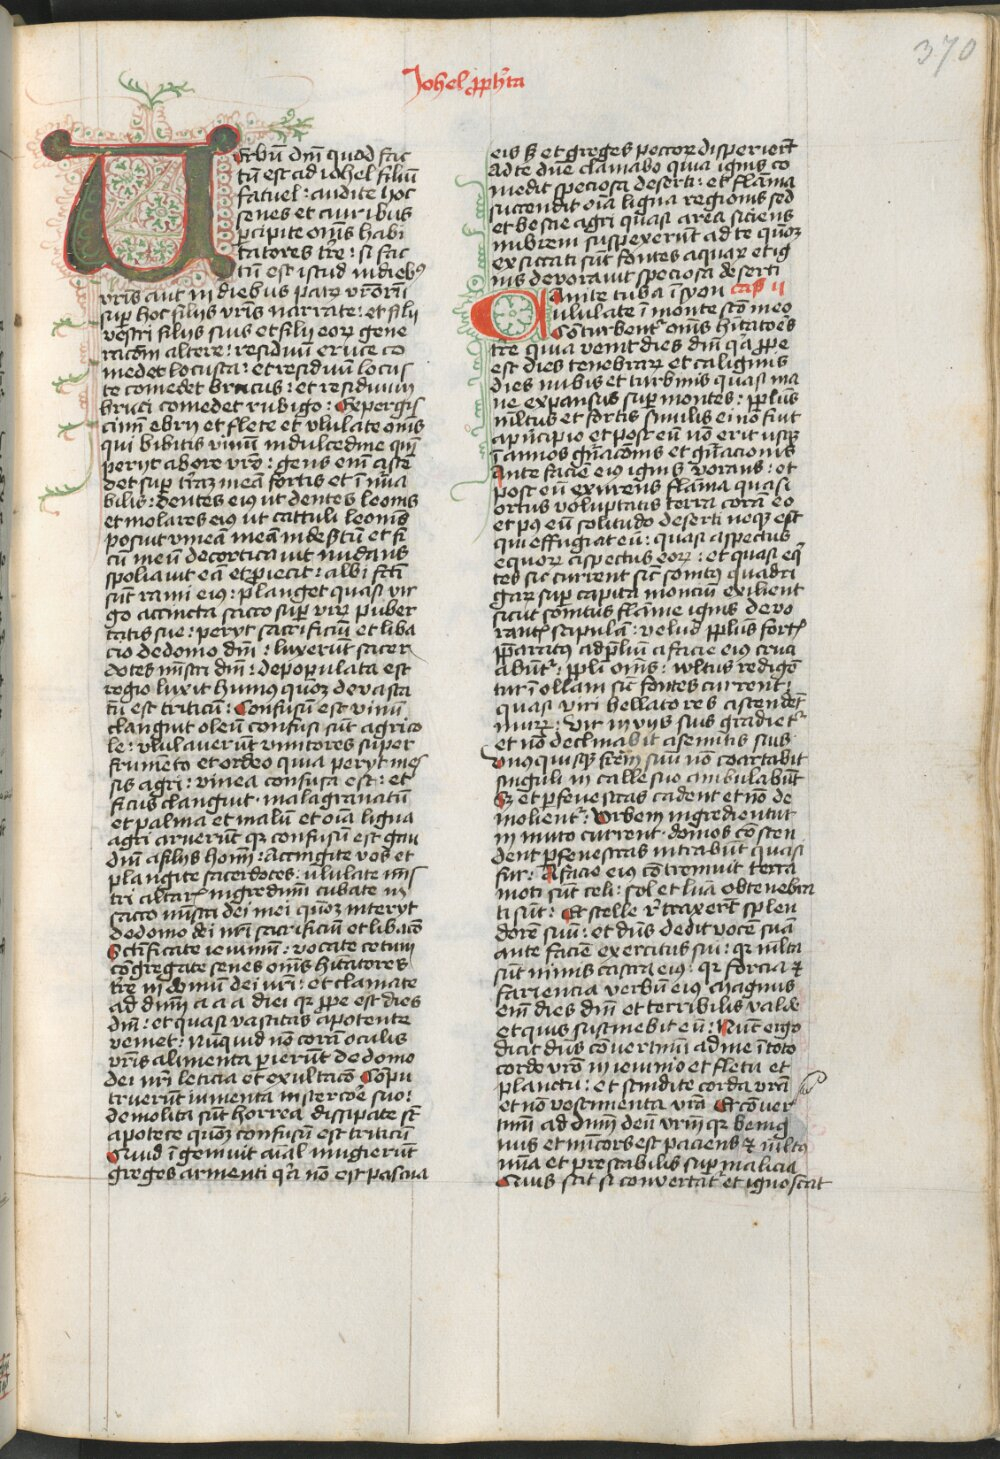 370
Johel ꝓph̄ta
Uerbū dn̄i quod fac
tū est ad iohel filiū
fatuel : audite hoc
senes et auribus
ꝑcipite om̄s habi
tatores tr̄e : si fac
tū est istud in diebꝰ
vr̄is aut in diebus patꝝ vr̄orū
sup̄ hoc filijs vr̄is narrate : et filij
vestri filijs suis et filij eoꝝ gene
racōni altere : residuū eruce co
medet locusta : et residuū locus
te comedet brucus : et residuum
bruci comedet rubigo : Expergis
cimī ebrij et flete et ululate om̄s
qui bibitis vinū in dulcedine qm̄
perijt ab ore vr̄o : gens em̄ ascē
det sup̄ terrā meā fortis et īnūa
bilis : dentes eiꝰ ut dentes leonis
et molares eiꝰ ut cattuli leonis
posuit vineā meā in desertū et fi
cū meū decorticavit nudans
spoliavit eā et ꝓiecit : albi fc̄ti
sūt rami eiꝰ : plange quasi vir
go accincta sacco sup̄ virū puber
tatis sue : perijt sacrificiū et liba
cio de domo dn̄i : luxerūt sacer
dotes mīstri dn̄i : depopulata est
regio luxit humꝰ quoꝝ devasta
tū est triticū : Confusū est vinū
elanguit oleū confusi sūt agrico
le : ululaverūt vinitores super
frumēto et ordeo quia perijt mes
sis agri : vinea confusa est : et
ficus elanguit · malagranatū
et palma et malū et oīa ligna
agri aruerūt qꝛ confusum est gau
diū a filijs homī : Accingite vos et
plangite sacerdotes : ululate mīs
tri altarꝭ ingredimī cubate in
sacco mīstri dei mei quoꝝ interijt
de domo dei vr̄i sacrificiū et libacō
Sctificate ieiuniū : vocate cetum
cōgregate senes om̄s hītatores
tr̄e in domū dei vr̄i : et clamate
ad dn̄m a a a diei qꝛ ꝓpe est dies
dn̄i : et quasi vastitas a potente
veniet : Nūquid nō corā oculis
vr̄is alimenta perierūt de domo
dei vr̄i leticia et exultacō Cōpu
truerūt iumenta in stercōre suo :
demolita sūt horrea dissipate st̄
apotece quoꝝ confusū est triticū
Quid īgemuit aīal mugierūt
greges armenti qꝛ nō est pascua
eis sꝫ et greges pecorꝝ disperierūt
Ad te dn̄e clamabo quia ignis co
medit speciosa deserti : et flāma
succendit oīa ligna regionis sed
et bestie agri quasi area siciens
nubrem suspexerūt ad te quoꝝ
exsiccati sūt fontes aquaꝝ et ig
nis devoravit speciosa deserti
Canite tuba ī syon cap̄ ij
ululate ī monte scō meo
Cōturbentꝰ om̄s hītatores
tr̄e quia venit dies dn̄i qꝛ ꝓpe
est dies tenebraꝝ et caliginis
dies nubis et turbinis quasi ma
ne expansus sup̄ montes : ppl̄us
mltus et fortis similis ei nō fuit
a principio et post eū nō erit usqꝫ
ī annos gn̄acōnis et gn̄acionis
Ante faciē eiꝰ ignis vorans : et
post eū exurens flāma quasi
ortus voluptatis terra corā eo
et pꝰ eū solitudo deserti neqꝫ est
qui effugiat eū : quasi aspectus
equoꝝ aspectus eoꝝ : et quasi eq̄
tes sic current sic̄ sonitꝰ quadri
gaꝝ sup̄ capita monciū exilient
sicut sonitus flāme ignis devo
rantꝭ stipulā : velud ppl̄us fortꝭ
p̄paratꝰ ad p̄liū a facie eiꝰ cruci
abūtꝰ ppl̄i om̄s : vultus redigē
tur ī ollam sic̄ fontes current :
quasi viri bellatores ascendēt
murū : vir in vijs suis gradietꝰ
et nō declinabit a semitis suis
unusquisqꝫ fr̄em suū nō coartabit
singuli in calle suo ambulabūt
Sꝫ et per fenestras cadent et nō de
molientꝰ : Urbem ingredientur
in muro current · domos cōscen
dent per fenestras intrabūt quasi
fur : A facie eiꝰ cōtremuit terra
moti sūt celi : sol et luna obtenebra
ti sūt : Et stelle rͥtraxerūt splen
dorē suū : et dn̄s dedit vocē suā
ante faciē exercitus sui : qꝛ mlta
sūt nimis castra eiꝰ : qꝛ forcia ⁊
faciencia verbū eiꝰ magnus
em̄ dies dn̄i et terribilis valde
et quis sustinebit eū : Nūc ergo
dicit dn̄s cōvertimī ad me ītoto
corde vr̄o in ieiunio et fletu et
planctu : et scindite corda vr̄a
et nō vestimenta vr̄a Et cōver
timī ad dn̄m deū vr̄m qꝛ benig
nus et mīcors est paciens ⁊ mlte
mīa et prestabilis sup̄ malicia
Quis scit si convertatꝰ et ignoscat